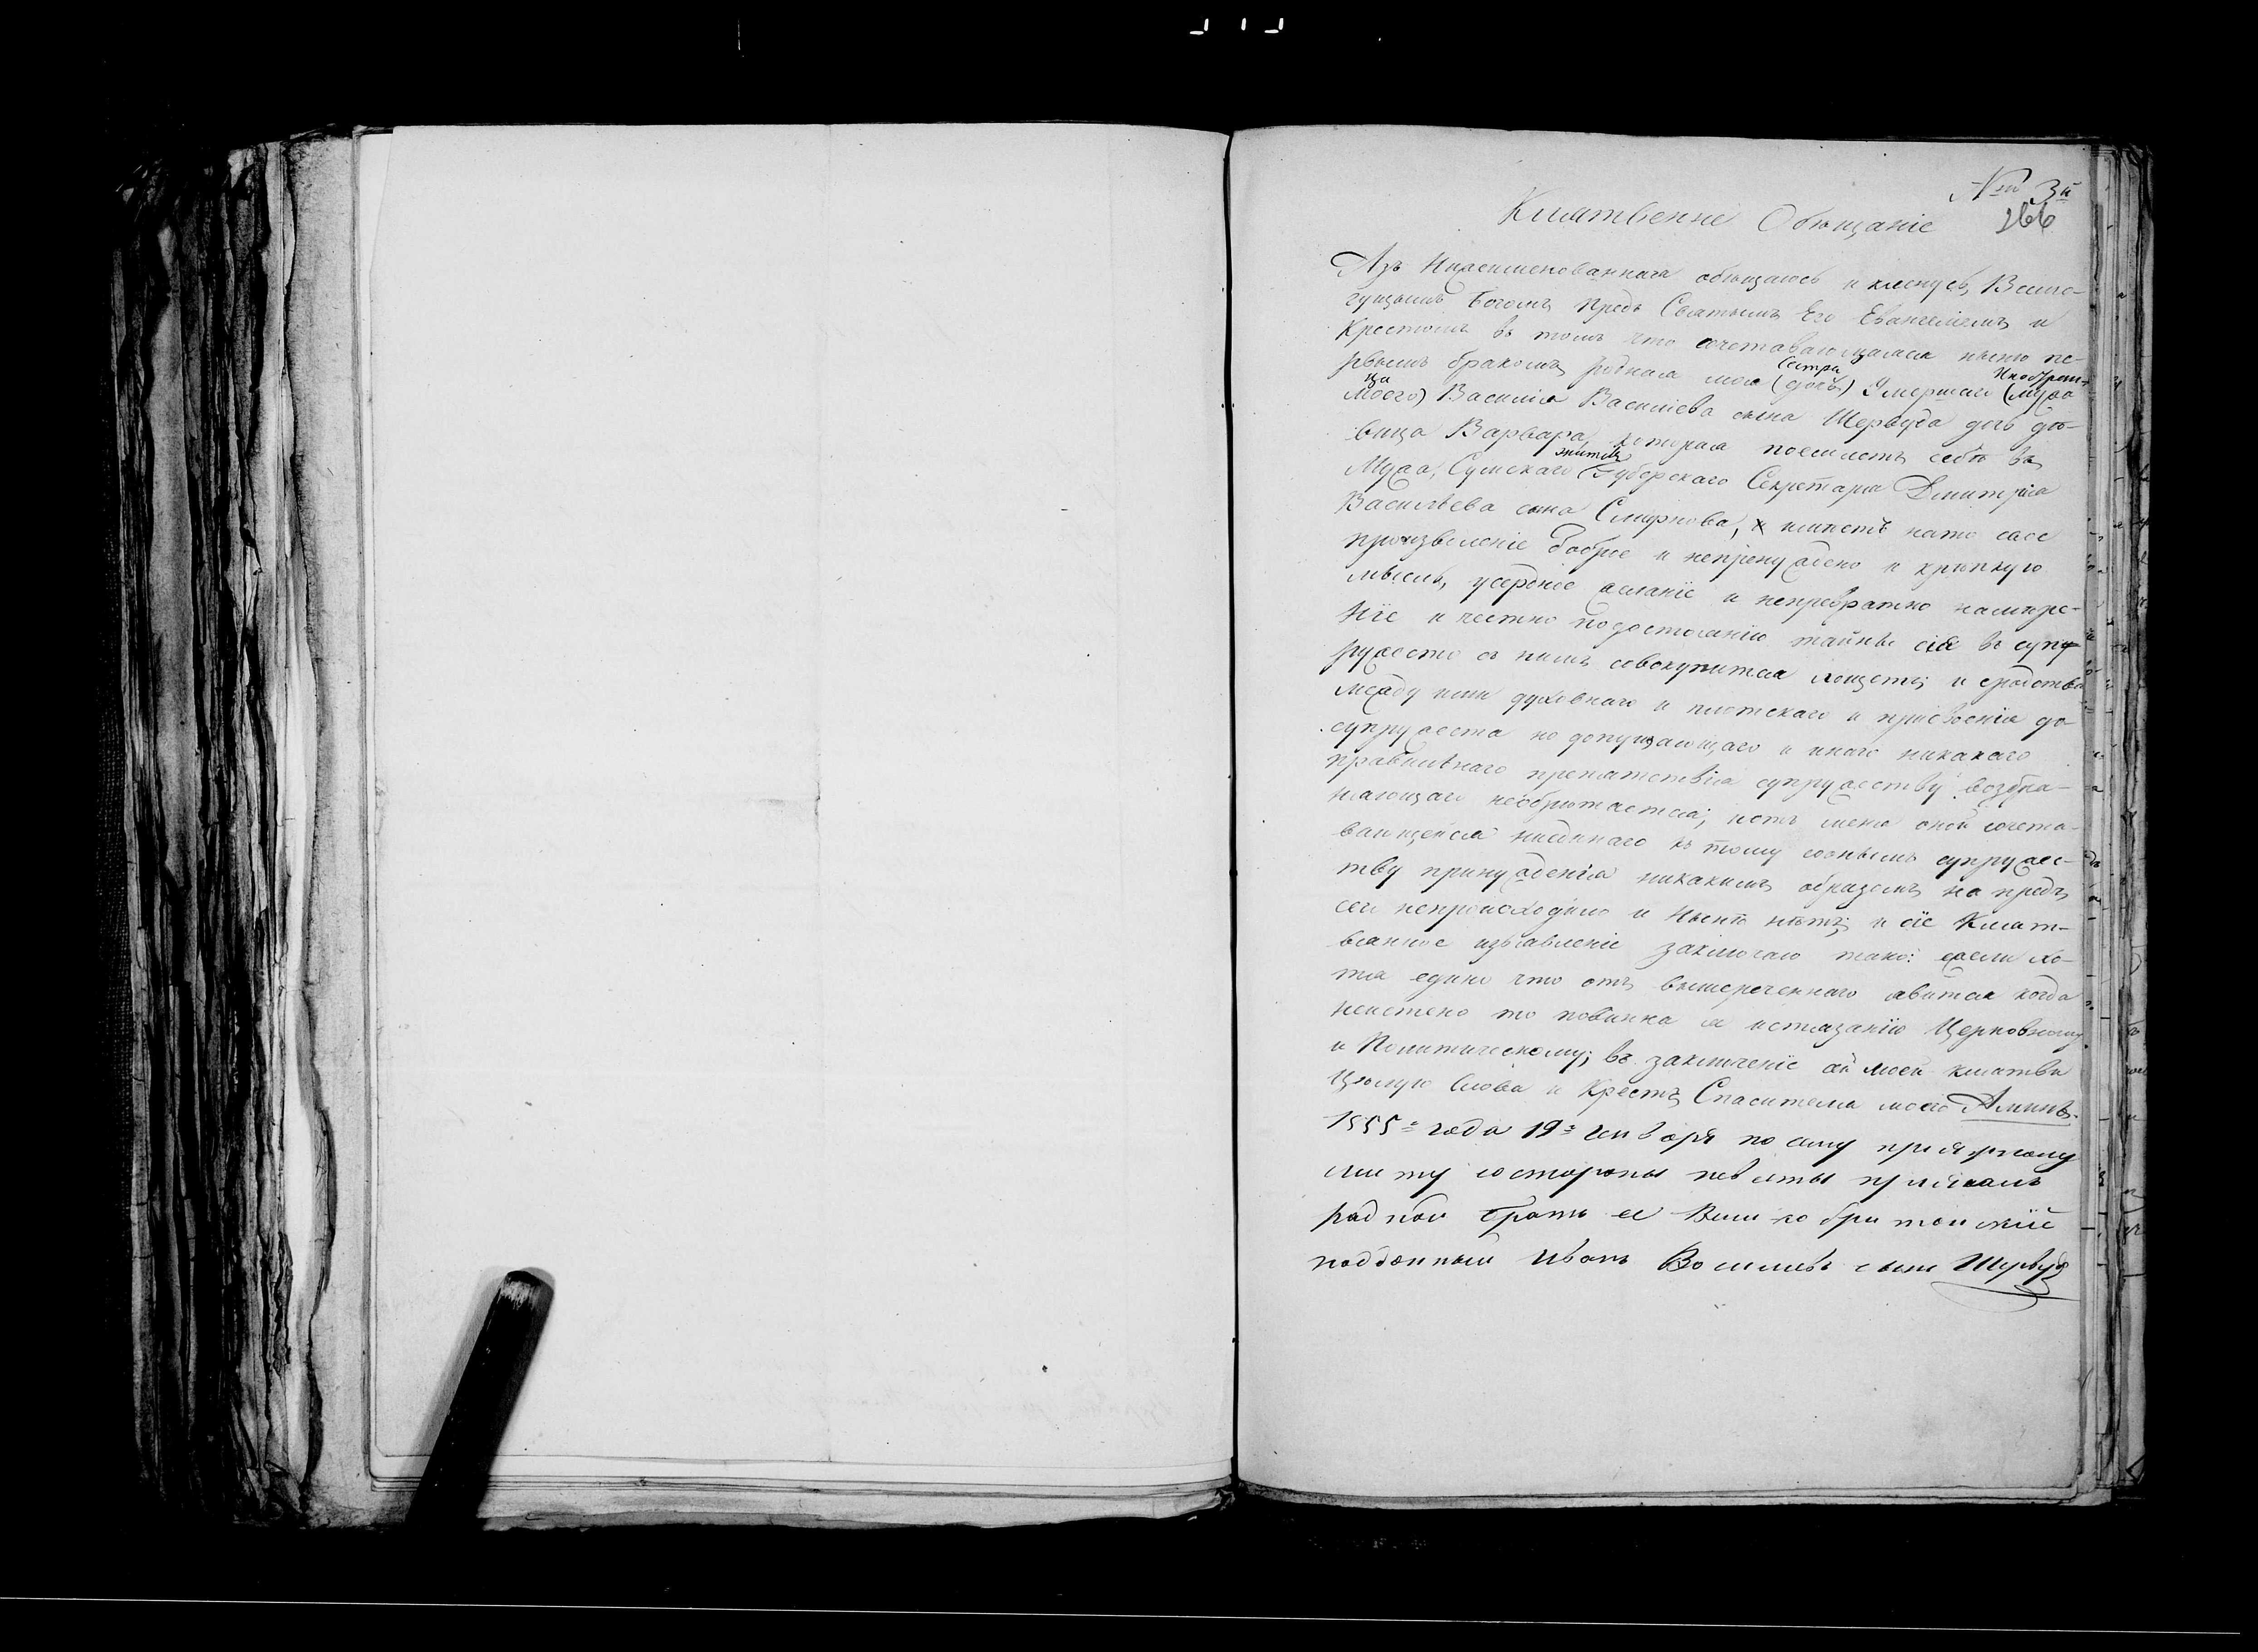 № 3й
266
Клятвенне Обѣщаніе
Азъ Нижеименованная обѣщаюсь и кленусь, Всемо-
гущымъ Богомъ предъ Святымъ Его Евангелиемъ и
Крестомъ въ томъ что сочетавающаяся нынѣ пе-
рвымъ бракомъ родная моя (дочь) сестра Умершаго (мужа Иностран-
моего) ца Василія Васильева сына Шервуда дочь дѣ-
вица Варвара, которая поемлетъ себѣ въ
Мужа, Сумскаго жителя Губерскаго Секретаря Дмитрія
Васильева сына Смирнова, имѣетъ на то свое
произволеніе доброе и непренужденно и крѣпкую
мысль, усердное желаніе и непревратно намѣре-
ніе и честно по достоянію тайны сія въ супу
ружество съ нимъ совокупится хощетъ; и сродства
между ими духовнаго и плотскаго и присвоенія до
супружества не допущающаго и инаго никакого
правильнаго препятствія супружеству возбра-
няющаго необрѣтается; и отъ меня оной сочета-
вающейся ниединаго къ тому соонымъ супружес-
тву принужденія никакимъ образомъ на предъ
сего непроисходило и Нынѣ нѣтъ; и сіе Клят-
венное изъявленіе заключаю тако: ежели хо-
тя едино что отъ вышереченнаго явится когда
неистено то повинна я истязанію Церковному
и Политическому; въ заключеніе сей моей клятвы
Цѣлую Слова и Крестъ Спасителя моего Аминь.
1855го года 19го генваря по сему присяжному
листу со стороны невѣсты присягалъ
радной братъ ее Великобританскій
подданный Иванъ Васильевъ сынъ Шервудъ